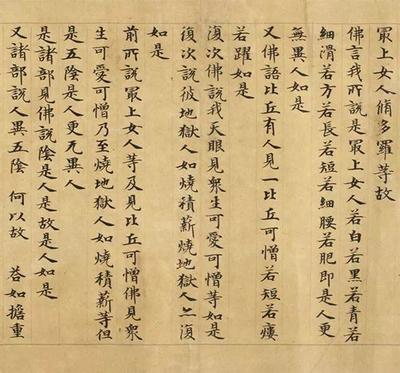 冣上女人脩多羅等故
佛言我所說是冣上女人若白若黒若青若
細滑若方若長若短若細腰若肥即是人更
無異人如是
又佛語比丘有人見一比丘可憎若短若瘻
若躍如是
復次佛說我天眼見衆生可愛可憎等如是
復次說彼地獄人如燒積薪燒地獄人亦復
如是
前所說冣上女人等及見比丘可憎佛見衆
生可愛可憎乃至燒地獄人如燒積薪等但
是五陰是人更无異人
是諸部見佛說陰是人是故是人如是
又諸部說人異五陰 何以故 荅如擔重